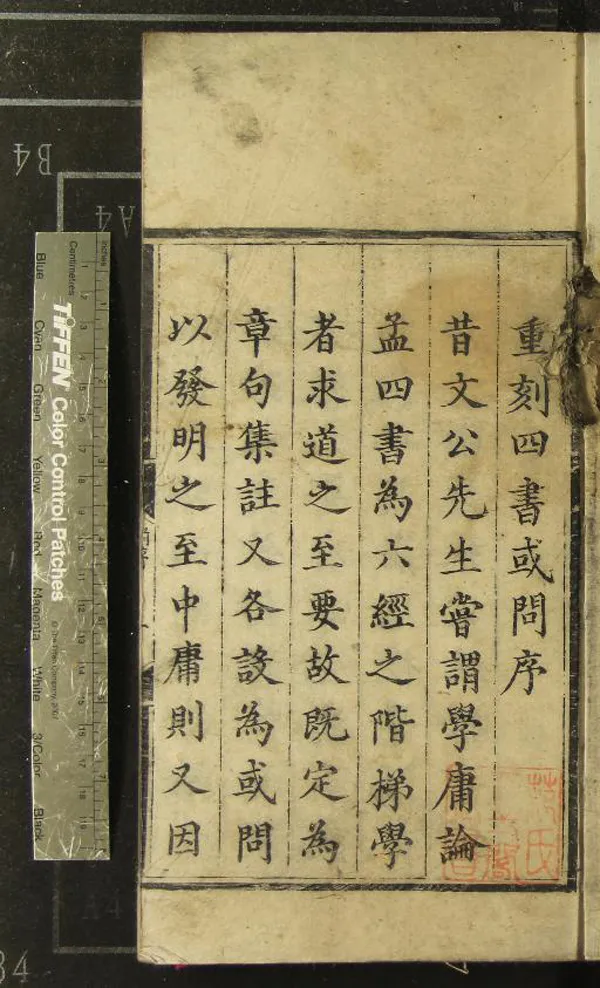 重刻四書或問序
昔文公先生嘗謂學庸論
孟四書為六經之階梯學
者求道之至要故既定為
章句集註又各設為或問
以發明之至中庸則又因
B4
A4
inches
Centimetres
TIFFEN Color Control Patches
© The Tiffen Company, 2007
Blue
Cyan
Green
Yellow
Red
Magenta
White
3/Color
Black
A4
B4